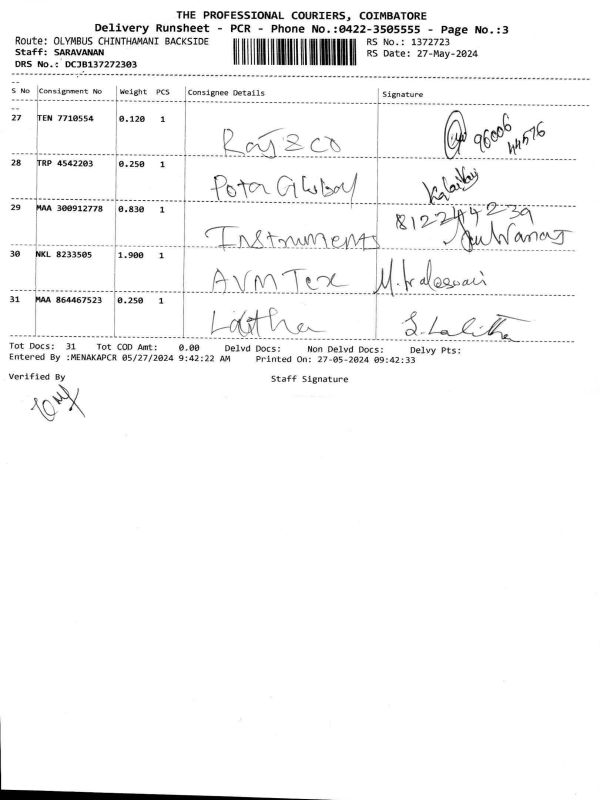 THE PROFESSIONAL COURIERS, COIMBATORE
Delivery Runsheet - PCR - Phone No.:0422-3505555 - Page No.:3
Route: OLYMBUS CHINTHAMANI BACKSIDE RS No.: 1372723
Staff: SARAVANAN RS Date: 27-May-2024
DRS No.: DCJB137272303
S No Consignment No Weight PCS Consignee Details Signature
27 TEN 7710554 0.120 1 Raj & co 96006
44576
28 TRP 4542203 0.250 1
29 MAA 300912778 0.830 1 Instruments 812244239
30 NKL 8233505 1.900 1 AVM Tex
31 MAA 864467523 0.250 1 Lalitha S. Lalitha
Tot Docs: 31 Tot COD Amt: 0.00 Delvd Docs: Non Delvd Docs: Delvy Pts:
Entered By :MENAKAPCR 05/27/2024 9:42:22 AM Printed On: 27-05-2024 09:42:33
Verified By Staff Signature